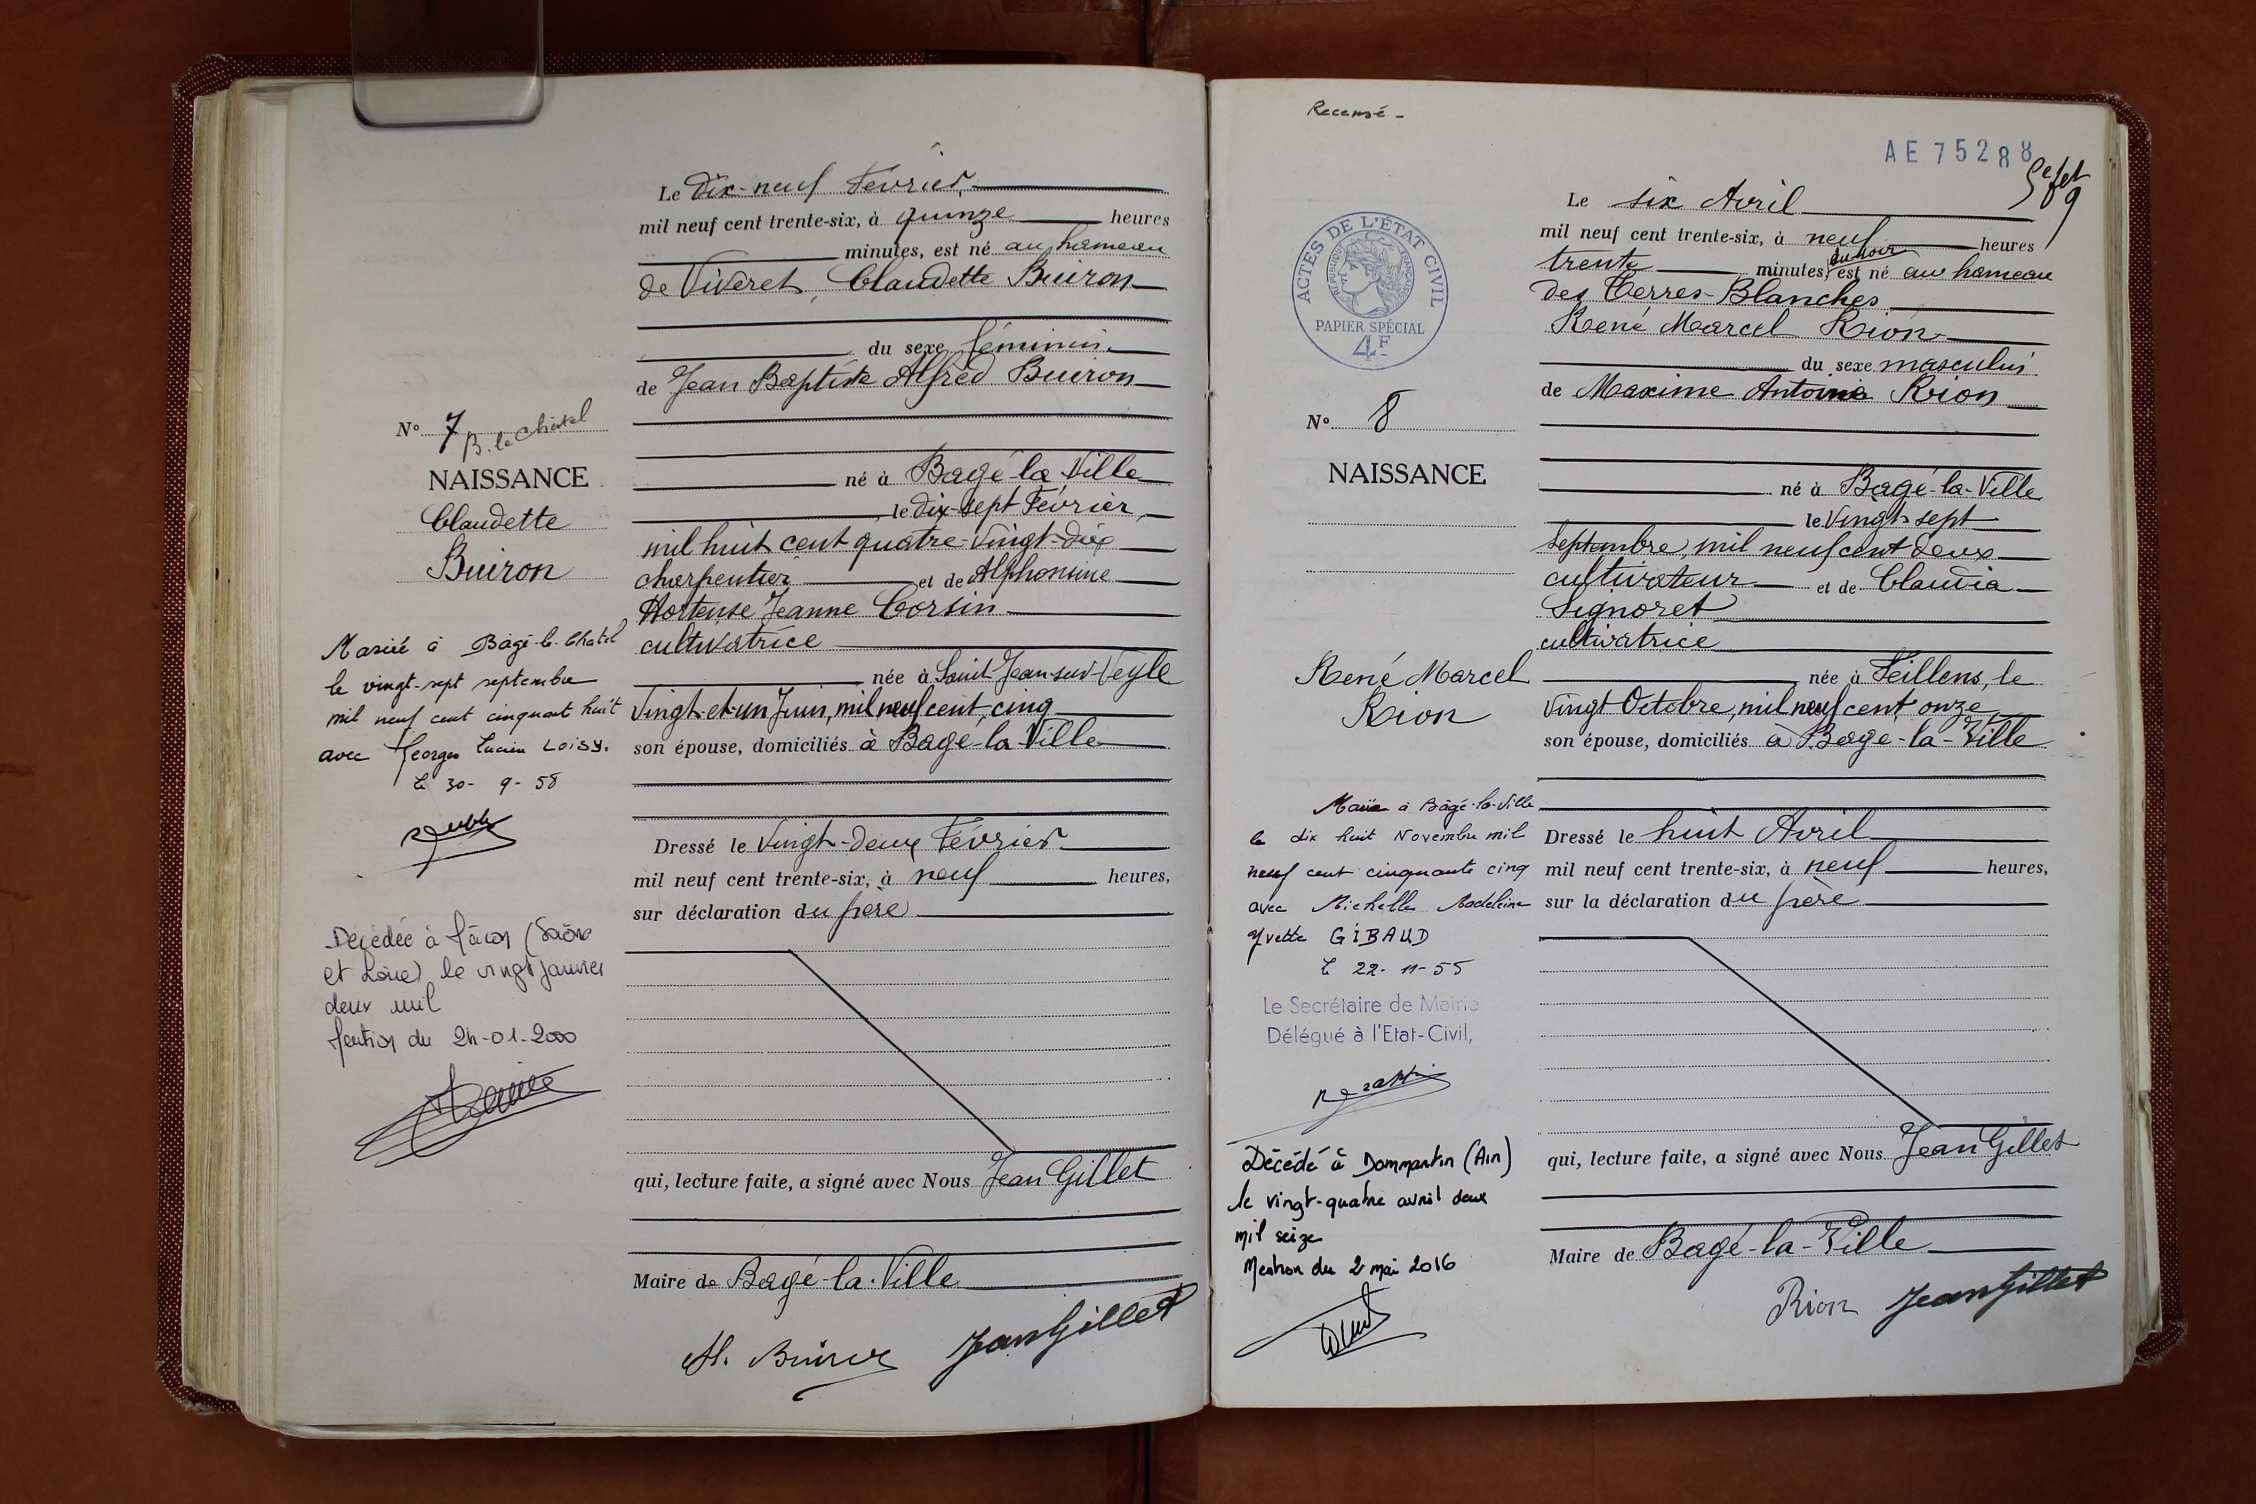 Le Dix-neuf Février,
mil neuf cent trente-six, à quinze heures
minutes, est né au hameau
de Viveret, Claudette Buiron
du sexe féminin.
de Jean Baptiste Alfred Buiron
N° 7 B. le Châtel
NAISSANCE
Claudette
Buiron
né à Bagé-la-Ville
le dix-sept Février,
mil huit cent quatre-Vingt-dix
charpentier et de Alphonsine
Hortense Jeanne Corsin
cultivatrice
née à Saint Jean-sur-Veyle
Vingt-et-un Juin, mil neuf cent, cinq
son épouse, domiciliés à Bagé-la-Ville
Marié à Bâgé-le-Chatel
le vingt-sept septembre
mil neuf cent cinquant huit
avec Georges Lucien LOISY.
le 30-9-58
Décédée à Mâcon (Saône
et Loire) le vingt janvier
deux mil
Mention du 24-01-2000
Dressé le Vingt-deux Février
mil neuf cent trente-six, à neuf heures,
sur déclaration du père
qui, lecture faite, a signé avec Nous Jean Gillet
Maire de Bagé-la-Ville
Al. Buiron Jean Gillet
Recensé -
AE 75288
5e fet
69
ACTES DE L'ÉTAT CIVIL
RÉPUBLIQUE FRANÇAISE
PAPIER SPÉCIAL
4F
Le six Avril
mil neuf cent trente-six, à neuf heures
du soir
trente minutes, est né au hameau
des Terres-Blanches
René Marcel Rion
du sexe masculin
de Maxime Antoine Rion
N° 8
NAISSANCE
René Marcel
Rion
né à Bagé-la-Ville
le Vingt-sept
septembre, mil neuf cent deux
cultivateur et de Claudia
Signoret
cultivatrice
née à Feillens, le
Vingt Octobre, mil neuf cent onze
son épouse, domiciliés à Bagé-la-Ville
Marié à Bâgé-la-Ville
le dix huit Novembre mil
neuf cent cinquante cinq
avec Michelle Madeleine
Yvette GIBAUD
le 22-11-55
Le Secrétaire de Mairie
Délégué à l'Etat-Civil,
Décédé à Dommartin (Ain)
le vingt-quatre avril deux
mil seize
Mention du 2 mai 2016
Dressé le huit Avril
mil neuf cent trente-six, à neuf heures,
sur la déclaration du père
qui, lecture faite, a signé avec Nous Jean Gillet
Maire de Bagé-la-Ville
Rion Jean Gillet